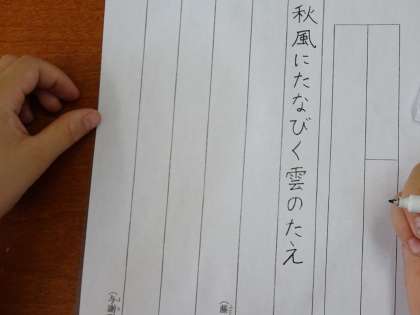 秋風にたなびく雲のたえ